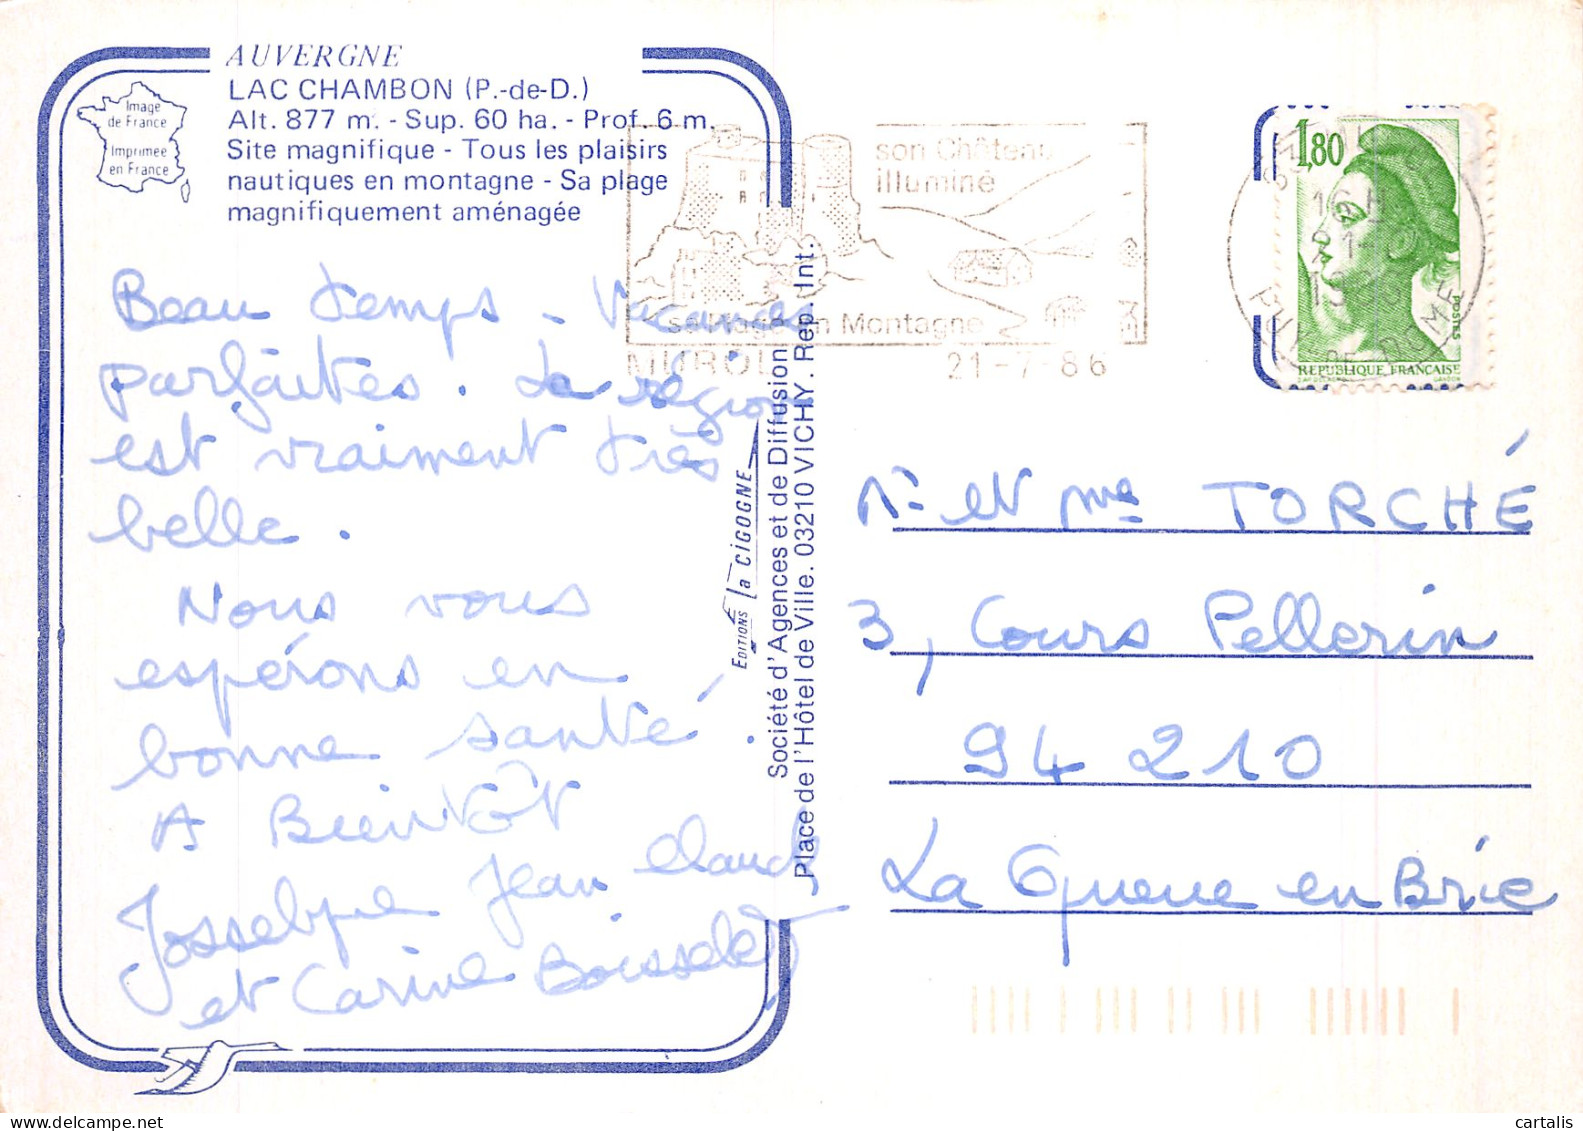 AUVERGNE
LAC CHAMBON (P.-de-D.)
Alt. 877 m. - Sup. 60 ha. - Prof. 6 m.
Site magnifique - Tous les plaisirs
nautiques en montagne - Sa plage
magnifiquement aménagée
Image
de France
Imprimée
en France
Beau temps - Vacances
parfaites. La région
est vraiment très
belle.
Nous vous
espérons en
bonne santé.
A Bientôt
Josselyne Jean Claude
et Carine Boisselet
EDITIONS la CIGOGNE
Société d'Agences et de Diffusion
Place de l'Hôtel de Ville. 03210 VICHY. Rep. Int.
son Château
illuminé
sa Plage en Montagne
MUROL
21-7-86
16 H
21-
1986
PUY-DE-DOME
1,80
POSTES
REPUBLIQUE FRANÇAISE
GANDON
Mr et Mme TORCHÉ
3, Cours Pellerin
94 210
La Queue en Brie
cartalis